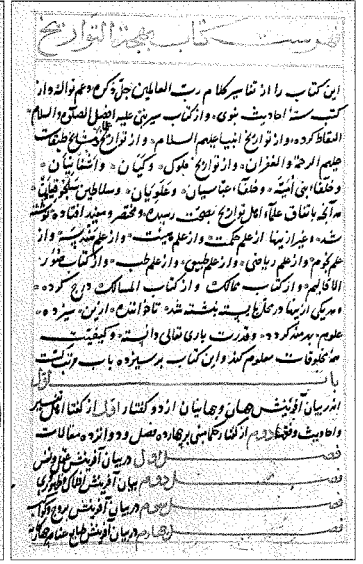 فهرست کتاب بهجة التواریخ
این کتاب را از تفاسیر کلام رب العالمین جل ذکره و عم نواله و از
کتب ستهٔ احادیث نبوی و از کتاب سیر نبی علیه افضل الصلوة و السلام
التقاط کرده و از تواریخ انبیا علیهم السلام و از تواریخ مشایخ طبقات
علیهم الرحمة و الغفران و از تواریخ ملوک و کیان و اشغانیان
و خلفاء بنی امیه و خلفاء عباسیان و علویان و سلاطین سلجوقیان
آنچه باتفاق علماء اهل تواریخ بصحت رسیده و مختصر و مفید افتاده
شد و غیر از اینها از علم حکمت و از علم هیئت و از علم و از
علم نجوم و از علم ریاضی و از علم طبیعی و از علم طب و از کتاب صور
الاقالیم و از کتاب ممالک و از کتاب المسالک درج کرده
و هر یکی از اینها در محل بسته نبشته شد تا خواننده ازین سیزده
علوم بهره‌مند گردد و قدرت باری تعالی دانسته و کیفیت
مخلوقات معلوم کند و این کتاب بر سیزده باب مرتب است
باب اول
اندر بیان آفرینش جهان و جهانیان از دو گفتار اول از گفتار اهل تفسیر
و احادیث و قصه دوم از گفتار حکما مبنی بر چهارده فصل و دوازده مقالات
فصل اول در بیان آفرینش
فصل دوم بیان آفرینش افلاک
فصل سوم در بیان آفرینش بروج و کواکب
فصل چهارم در بیان آفرینش طبایع عناصر چهارگانه